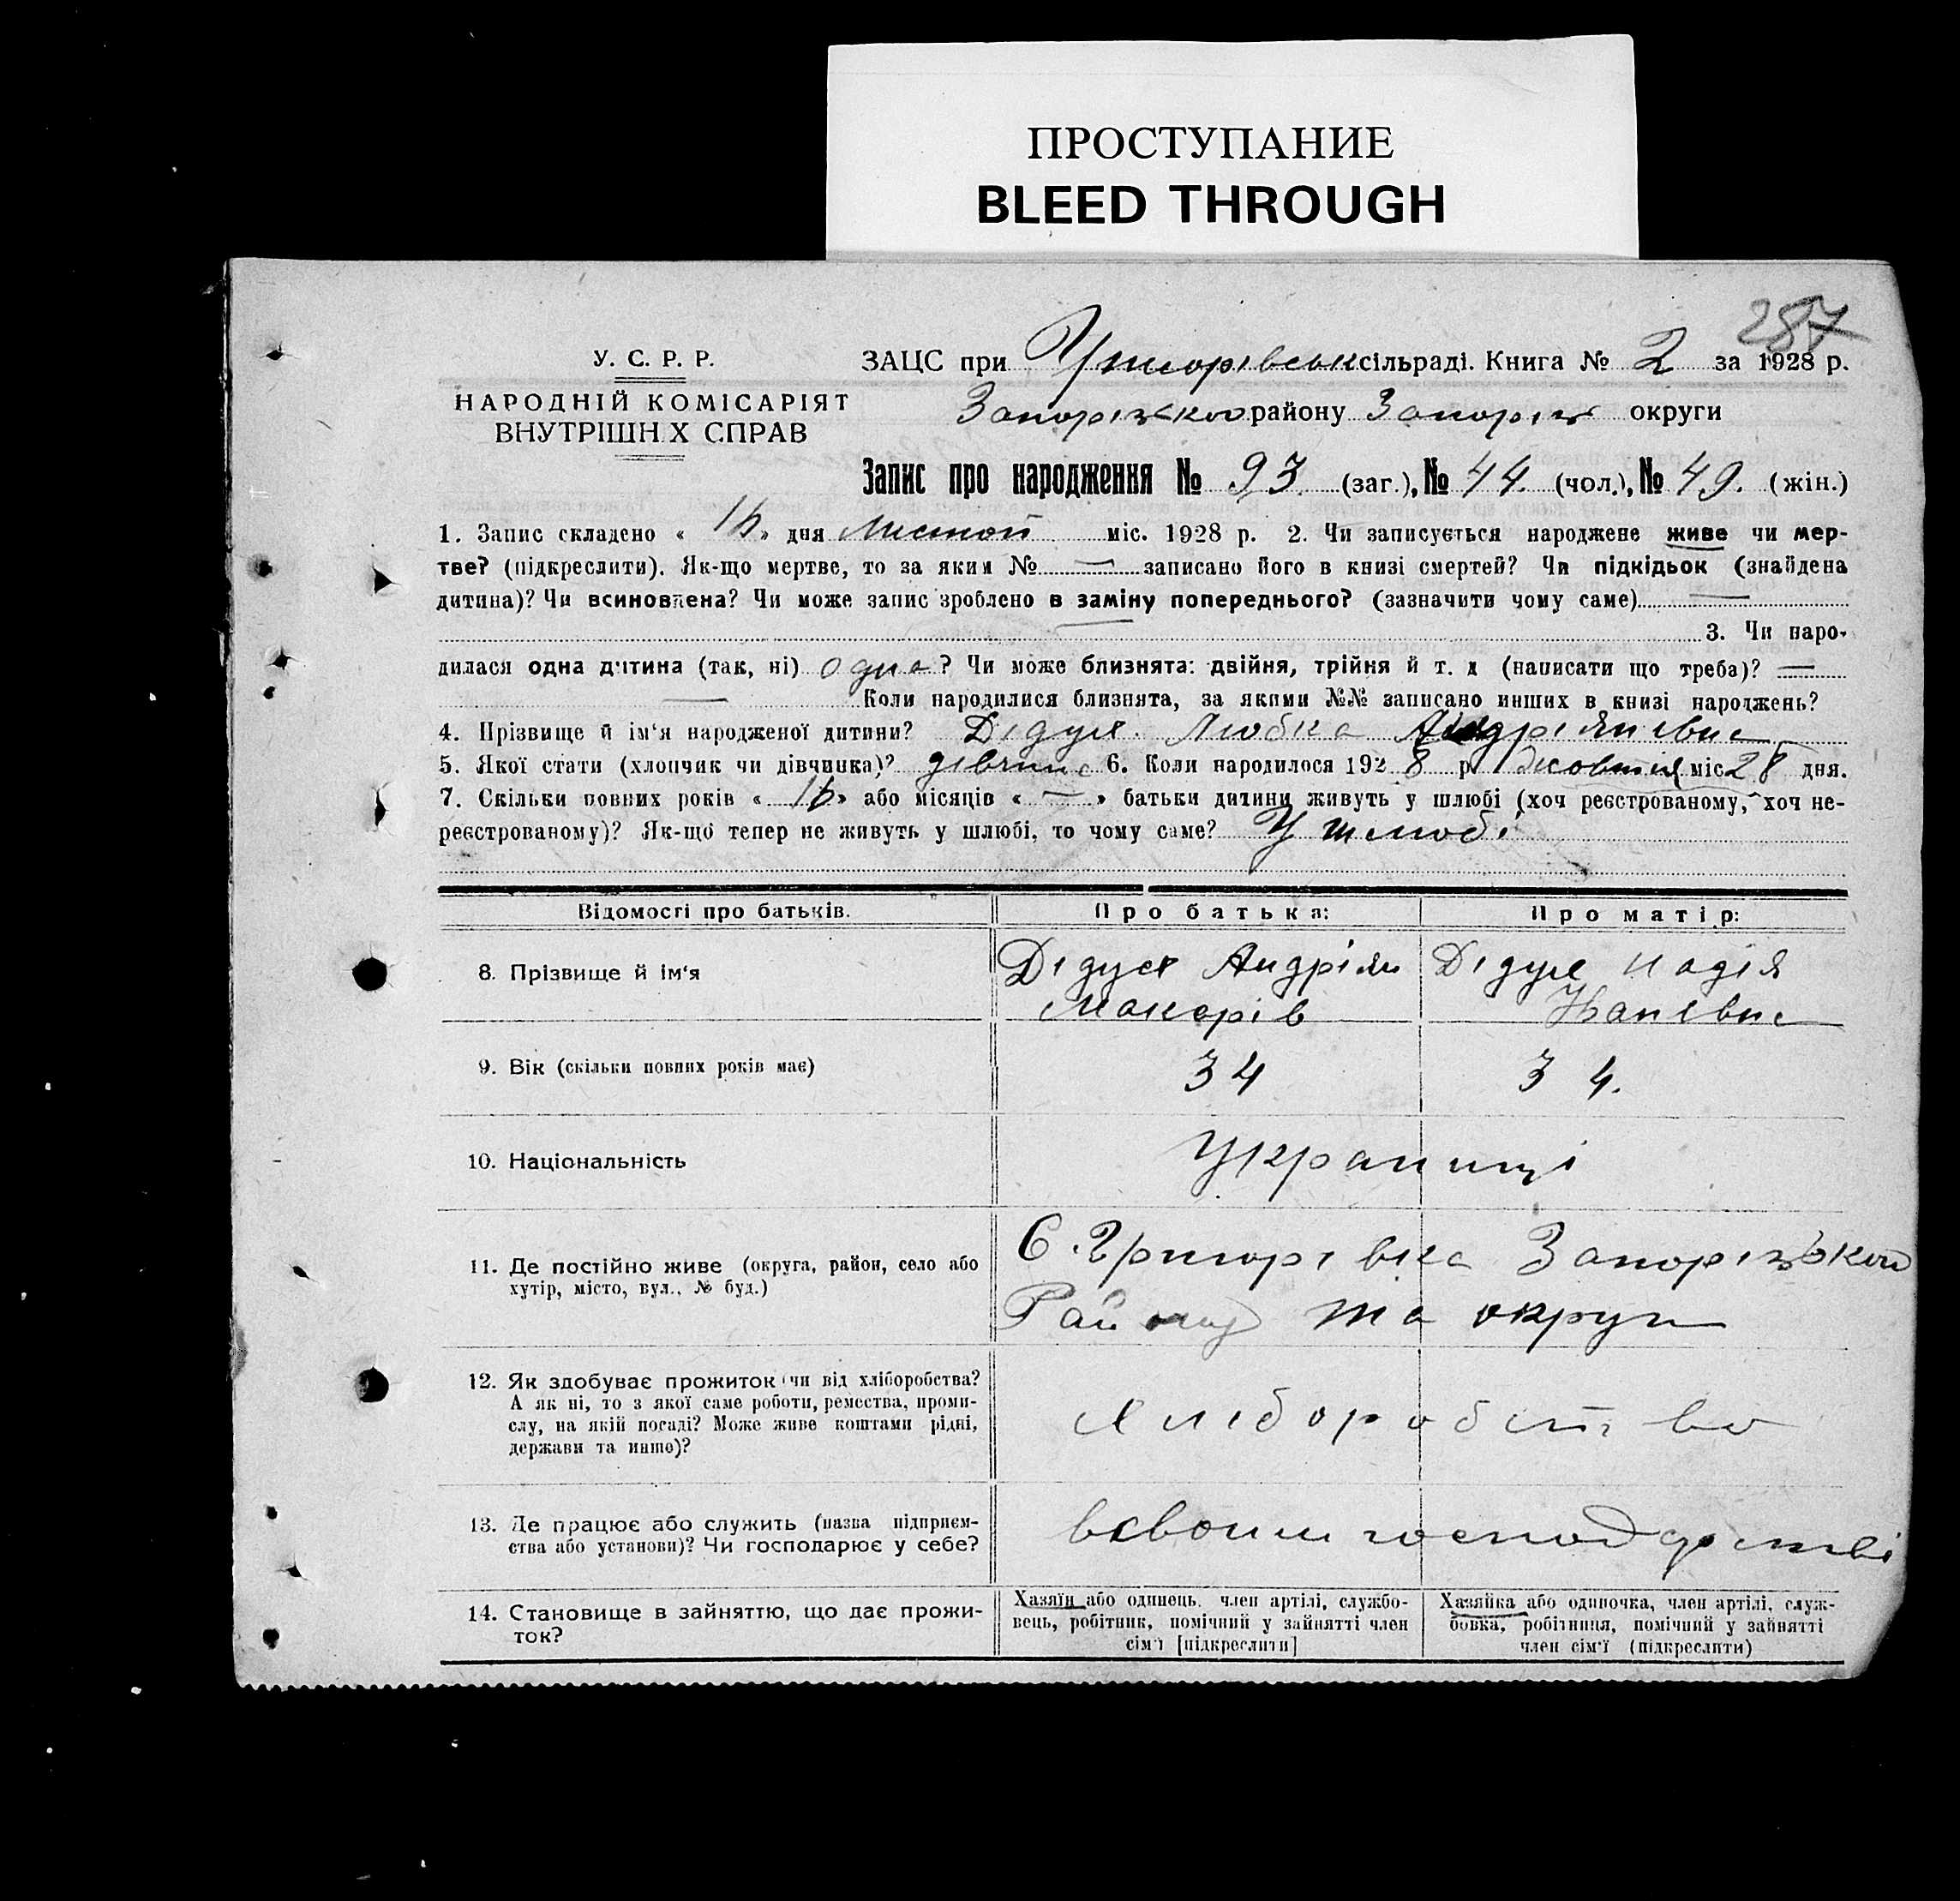 ПРОСТУПАНИЕ
BLEED THROUGH
287
У. С. Р. Р.
НАРОДНІЙ КОМІСАРІЯТ
ВНУТРІШН Х СПРАВ
ЗАЦС при Григорівськ сільраді. Книга № 2 за 1928 р.
Запорізької району Запоріз округи
Запис про народження № 93 (заг.), № 44. (чол.), № 49. (жін.)
1. Запис складено « » дня Листоп міс. 1928 р. 2. Чи записується народжене живе чи мер-
тве? (підкреслити). Як-що мертве, то за яким № — записано його в книзі смертей? Чи підкідьок (знайдена
дитина)? Чи всиновлена? Чи може запис зроблено в заміну попереднього? (зазначити чому саме) —
3. Чи наро-
дилася одна дитина (так, ні) одна? Чи може близнята: двійня, трійня й т. д (написати що треба)? —
— Коли народилися близнята, за якими №№ записано инших в книзі народжень?
4. Прізвище й ім'я народженої дитини? Дідух Любка Андріянівна
5. Якої стати (хлопчик чи дівчинка)? дівчина 6. Коли народилося 1928 р. жовтня міс 28 дня.
7. Скільки повних років « » або місяців « — » батьки дитини живуть у шлюбі (хоч реєстрованому, хоч не-
реєстрованому)? Як-що тепер не живуть у шлюбі, то чому саме? У шлюбі
Відомості про батьків.
Про батька:
Про матір:
8. Прізвище й ім'я
Дідух Андріян
Макарів
Дідух Надія
Іванівна
9. Вік (скільки повних років має)
34
34.
10. Національність
Українці
11. Де постійно живе (округа, район, село або
хутір, місто, вул., № буд.)
С. Григорівка Запорізької
Району та округи
12. Як здобуває прожиток (чи від хліборобства?
А як ні, то з якої саме роботи, ремества, проми-
слу, на якій посаді? Може живе коштами рідні,
держави та инше)?
Хліборобство
13. Де працює або служить (назва підприєм-
ства або установи)? Чи господарює у себе?
в своїм господарстві
14. Становище в зайняттю, що дає прожи-
ток?
Хазяїн або одинець, член артілі, службо-
вець, робітник, помічний у зайнятті член
сім'ї [підкреслити]
Хазяйка або одиночка, член артілі, служ-
бовка, робітниця, помічний у зайнятті
член сім'ї (підкреслити)